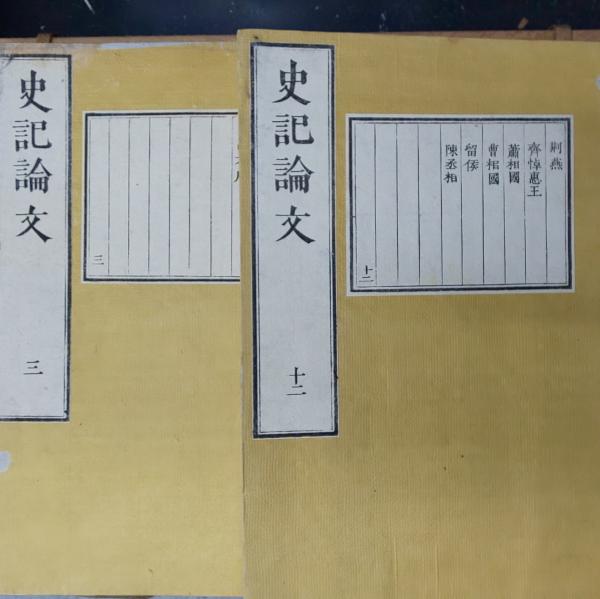 史記論文
十二
荆燕
齊悼惠王
蕭相國
曹相國
留侯
陳丞相
十二
史記論文
三
三